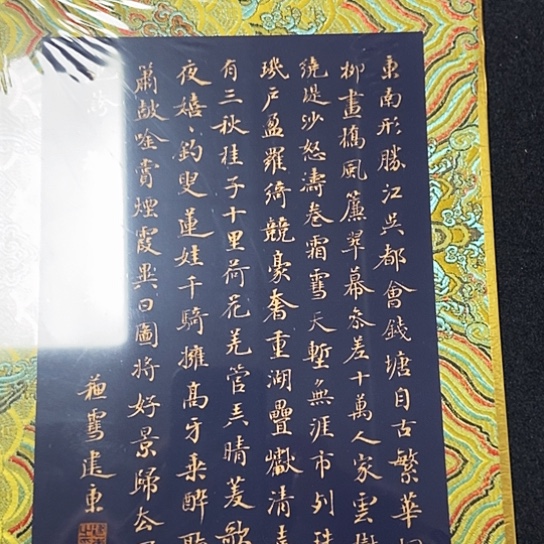 東南形勝江吳都會錢塘自古繁華
柳畫橋風簾翠幕叅差十萬人家雲樹
繞堤沙怒濤卷霜雪天塹無涯市列珠
璣戶盈羅綺競豪奢重湖疊巘清嘉
有三秋桂子十里荷花羌管弄晴菱歌
夜嬉〻釣叟蓮娃千騎擁高牙乘醉聽
簫鼓吟賞煙霞異日圖將好景歸去
雪建東